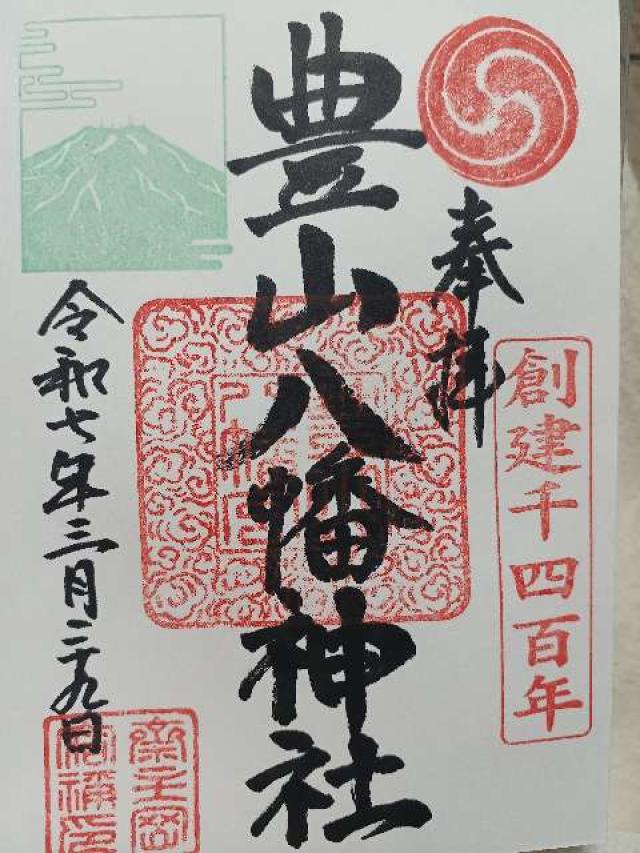 奉拝
創建千四百年
豊山八幡神社
令和七年三月二十九日